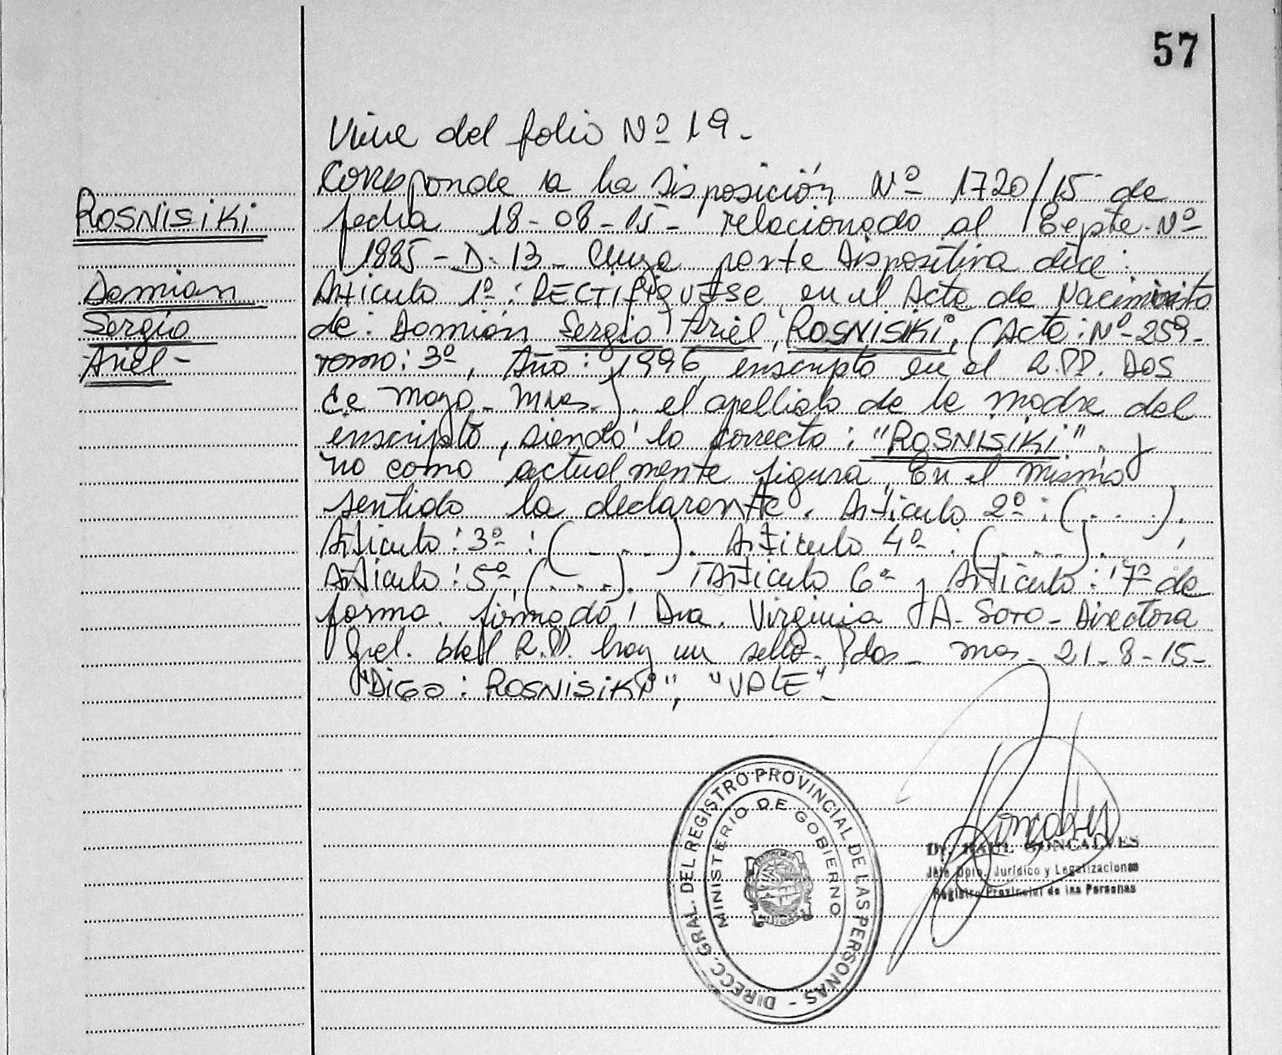 57
Viene del folio Nº 19-
Corresponde a la Disposición Nº 1720/15 de
ROSNISIKI
fecha 18-08-15- relacionado al Expte. Nº
1985-D-13- Cuya parte Dispositiva dice:
Damian
Articulo 1º: RECTIFIQUESE, en el Acta de Nacimiento
Sergio
de: Damián Sergio Ariel, ROSNISIKI, (Acta: Nº 259-
Ariel-
Tomo: 3º, Año: 1996, inscripto en el R.PP. DOS
de Mayo- Mnes.). el apellido de la madre del
inscripto, siendo lo correcto: "ROSNISIKI", y
no como actualmente figura, En el mismo
sentido la declarante. Articulo 2º: (....).
Articulo: 3º: (....). Articulo 4º: (....).
Articulo: 5º, (....). Articulo 6º y Articulo: 7º de
forma. firmado: Dra. Virginia A. Soto- Directora
Gral. del R.P.P. hay un sello- Pdas- Mnes- 21-8-15-
"Digo: ROSNISIKI", "VALE".
DIRECC. GRAL. DEL REGISTRO PROVINCIAL DE LAS PERSONAS -
MINISTERIO DE GOBIERNO
Dr. RAUL GONCALVES
Jefe Dpto. Jurídico y Legalizaciones
Registro Provincial de las Personas